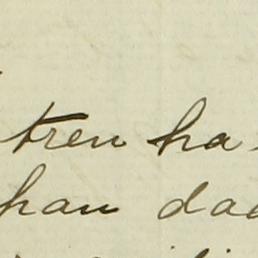 tren ha
han dad